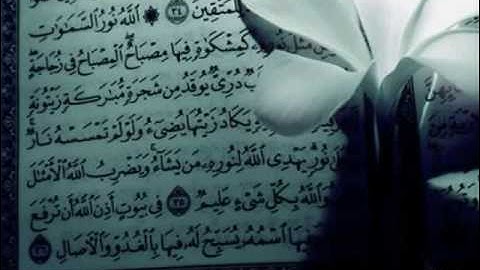 لِّلْمُتَّقِينَ ٣٤ ۞ ٱللَّهُ نُورُ ٱلسَّمَٰوَٰتِ
مَثَلُ نُورِهِۦ كَمِشْكَوٰةٍ فِيهَا مِصْبَاحٌ ٱلْمِصْبَاحُ فِى زُجَاجَةٍ
دُرِّىٌّ يُوقَدُ مِن شَجَرَةٍ مُّبَٰرَكَةٍ زَيْتُونَةٍ
يَكَادُ زَيْتُهَا يُضِىٓءُ وَلَوْ لَمْ تَمْسَسْهُ نَارٌ
نُورٍ يَهْدِى ٱللَّهُ لِنُورِهِۦ مَن يَشَآءُ وَيَضْرِبُ ٱللَّهُ ٱلْأَمْثَٰلَ
وَٱللَّهُ بِكُلِّ شَىْءٍ عَلِيمٌ ٣٥ فِى بُيُوتٍ أَذِنَ ٱللَّهُ أَن تُرْفَعَ
ٱسْمُهُۥ يُسَبِّحُ لَهُۥ فِيهَا بِٱلْغُدُوِّ وَٱلْءَاصَالِ ٣٦